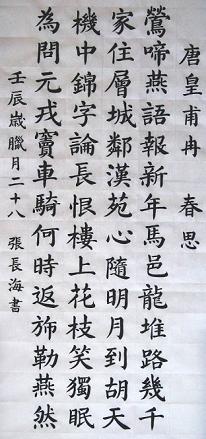 唐皇甫冉 春思
鶯啼燕語報新年馬邑龍堆路幾千
家住層城鄰漢苑心隨明月到胡天
機中錦字論長恨樓上花枝笑獨眠
為問元戎竇車騎何時返斾勒燕然
壬辰嵗臘月二十八 張長海書